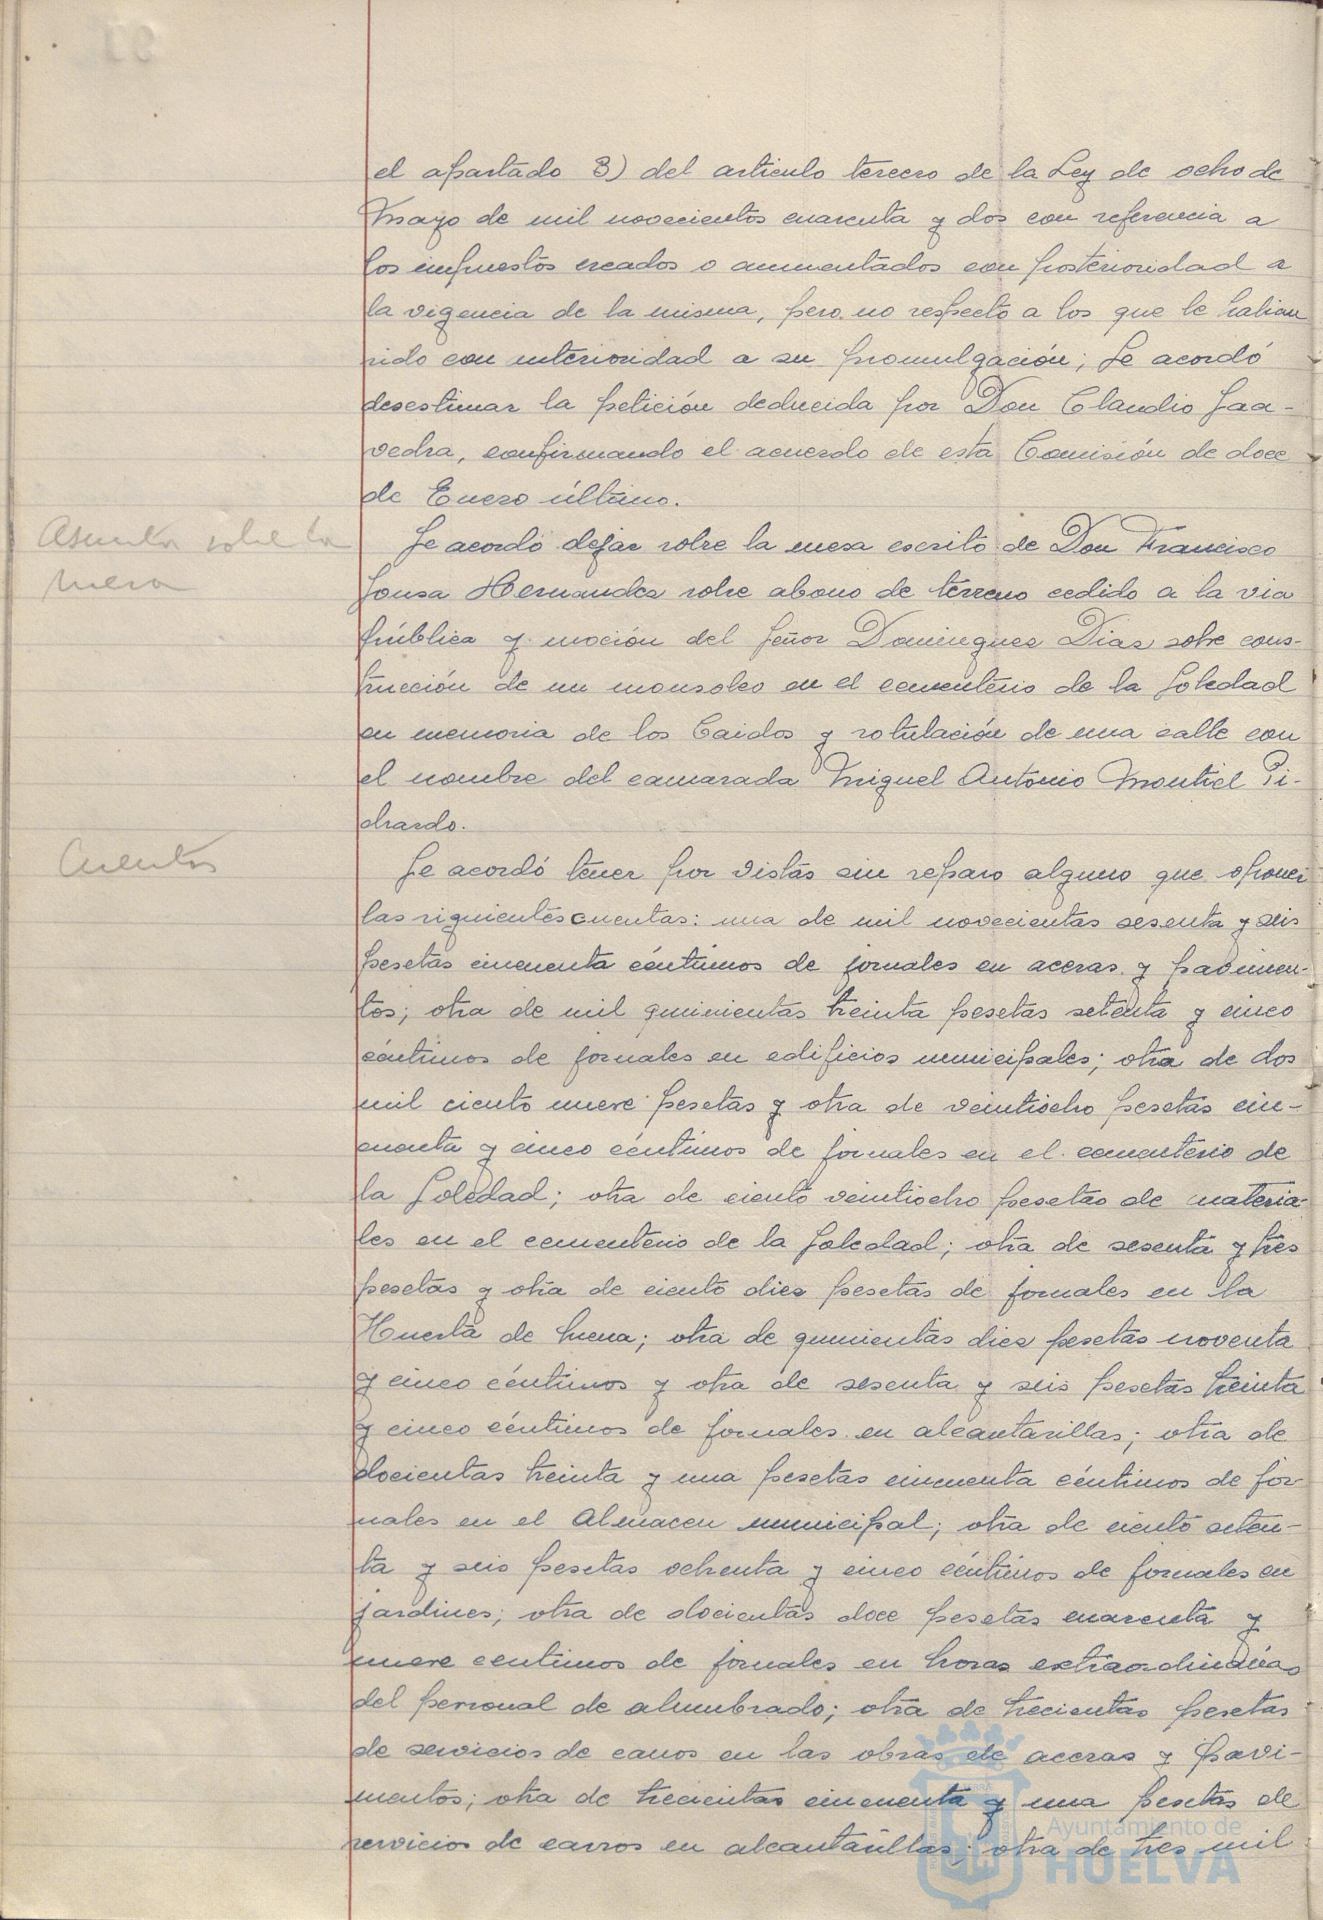 el apartado 3) del articulo tercero de la Ley de ocho de
Mayo de mil novecientos cuarenta y dos con referencia a
los impuestos creados o aumentados con posterioridad a
la vigencia de la misma, pero no respecto a los que lo habian
sido con anterioridad a su promulgación; Se acordó
desestimar la petición deducida por Don Claudio Saa-
vedra, confirmando el acuerdo de esta Comisión de doce
de Enero último.
Asuntos sobre la
mesa
Se acordó dejar sobre la mesa escrito de Don Francisco
Sousa Hernandez sobre abono de terreno cedido a la via
pública y moción del Señor Dominguez Diaz sobre cons-
trucción de un mausoleo en el cementerio de la Soledad
en memoria de los Caidos y rotulación de una calle con
el nombre del camarada Miguel Antonio Montiel Pi-
chardo.
Cuentas
Se acordó tener por vistas sin reparo alguno que oponer
las siguientes cuentas: una de mil novecientas sesenta y seis
pesetas cincuenta céntimos de jornales en aceras y pavimen-
tos; otra de mil quinientas treinta pesetas setenta y cinco
céntimos de jornales en edificios municipales; otra de dos
mil ciento nueve pesetas y otra de veintiocho pesetas cin-
cuenta y cinco céntimos de jornales en el cementerio de
la Soledad; otra de ciento veintiocho pesetas de materia-
les en el cementerio de la Soledad; otra de sesenta y tres
pesetas y otra de ciento diez pesetas de jornales en la
Huerta de Mena; otra de quinientas diez pesetas noventa
y cinco céntimos y otra de sesenta y seis pesetas treinta
y cinco céntimos de jornales en alcantarillas; otra de
docientas treinta y una pesetas cincuenta céntimos de jor-
nales en el Almacen municipal; otra de ciento seten-
ta y seis pesetas ochenta y cinco céntimos de jornales en
jardines; otra de docientas doce pesetas cuarenta y
nueve centimos de jornales en horas extraordinarias
del personal de alumbrado; otra de trecientas pesetas
de servicios de carros en las obras de aceras y pavi-
mentos; otra de trecientas cincuenta y una pesetas de
servicios de carros en alcantarillas; otra de tres mil
Ayuntamiento de
HUELVA